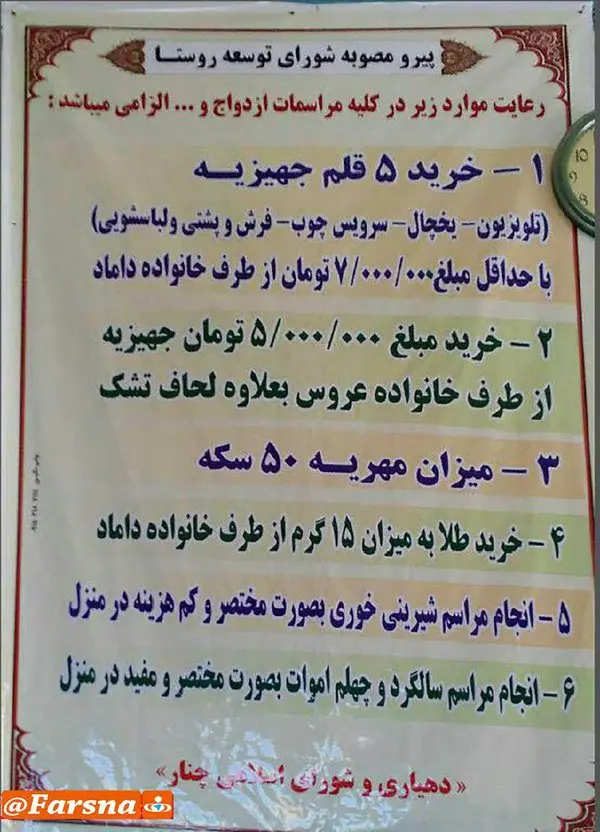 پیرو مصوبه شورای توسعه روستا
رعایت موارد زیر در کلیه مراسمات ازدواج و ... الزامی میباشد :
۱ - خرید ۵ قلم جهیزیه
(تلویزیون - یخچال - سرویس چوب - فرش و پشتی ولباسشویی)
با حداقل مبلغ ۷/۰۰۰/۰۰۰ تومان از طرف خانواده داماد
۲ - خرید مبلغ ۵/۰۰۰/۰۰۰ تومان جهیزیه
از طرف خانواده عروس بعلاوه لحاف تشک
۳ - میزان مهریه ۵۰ سکه
۴ - خرید طلا به میزان ۱۵ گرم از طرف خانواده داماد
۵ - انجام مراسم شیرینی خوری بصورت مختصر و کم هزینه در منزل
۶ - انجام مراسم سالگرد و چهلم اموات بصورت مختصر و مفید در منزل
« دهیاری و شورای اسلامی چنار»
@Farsna
10
9
8